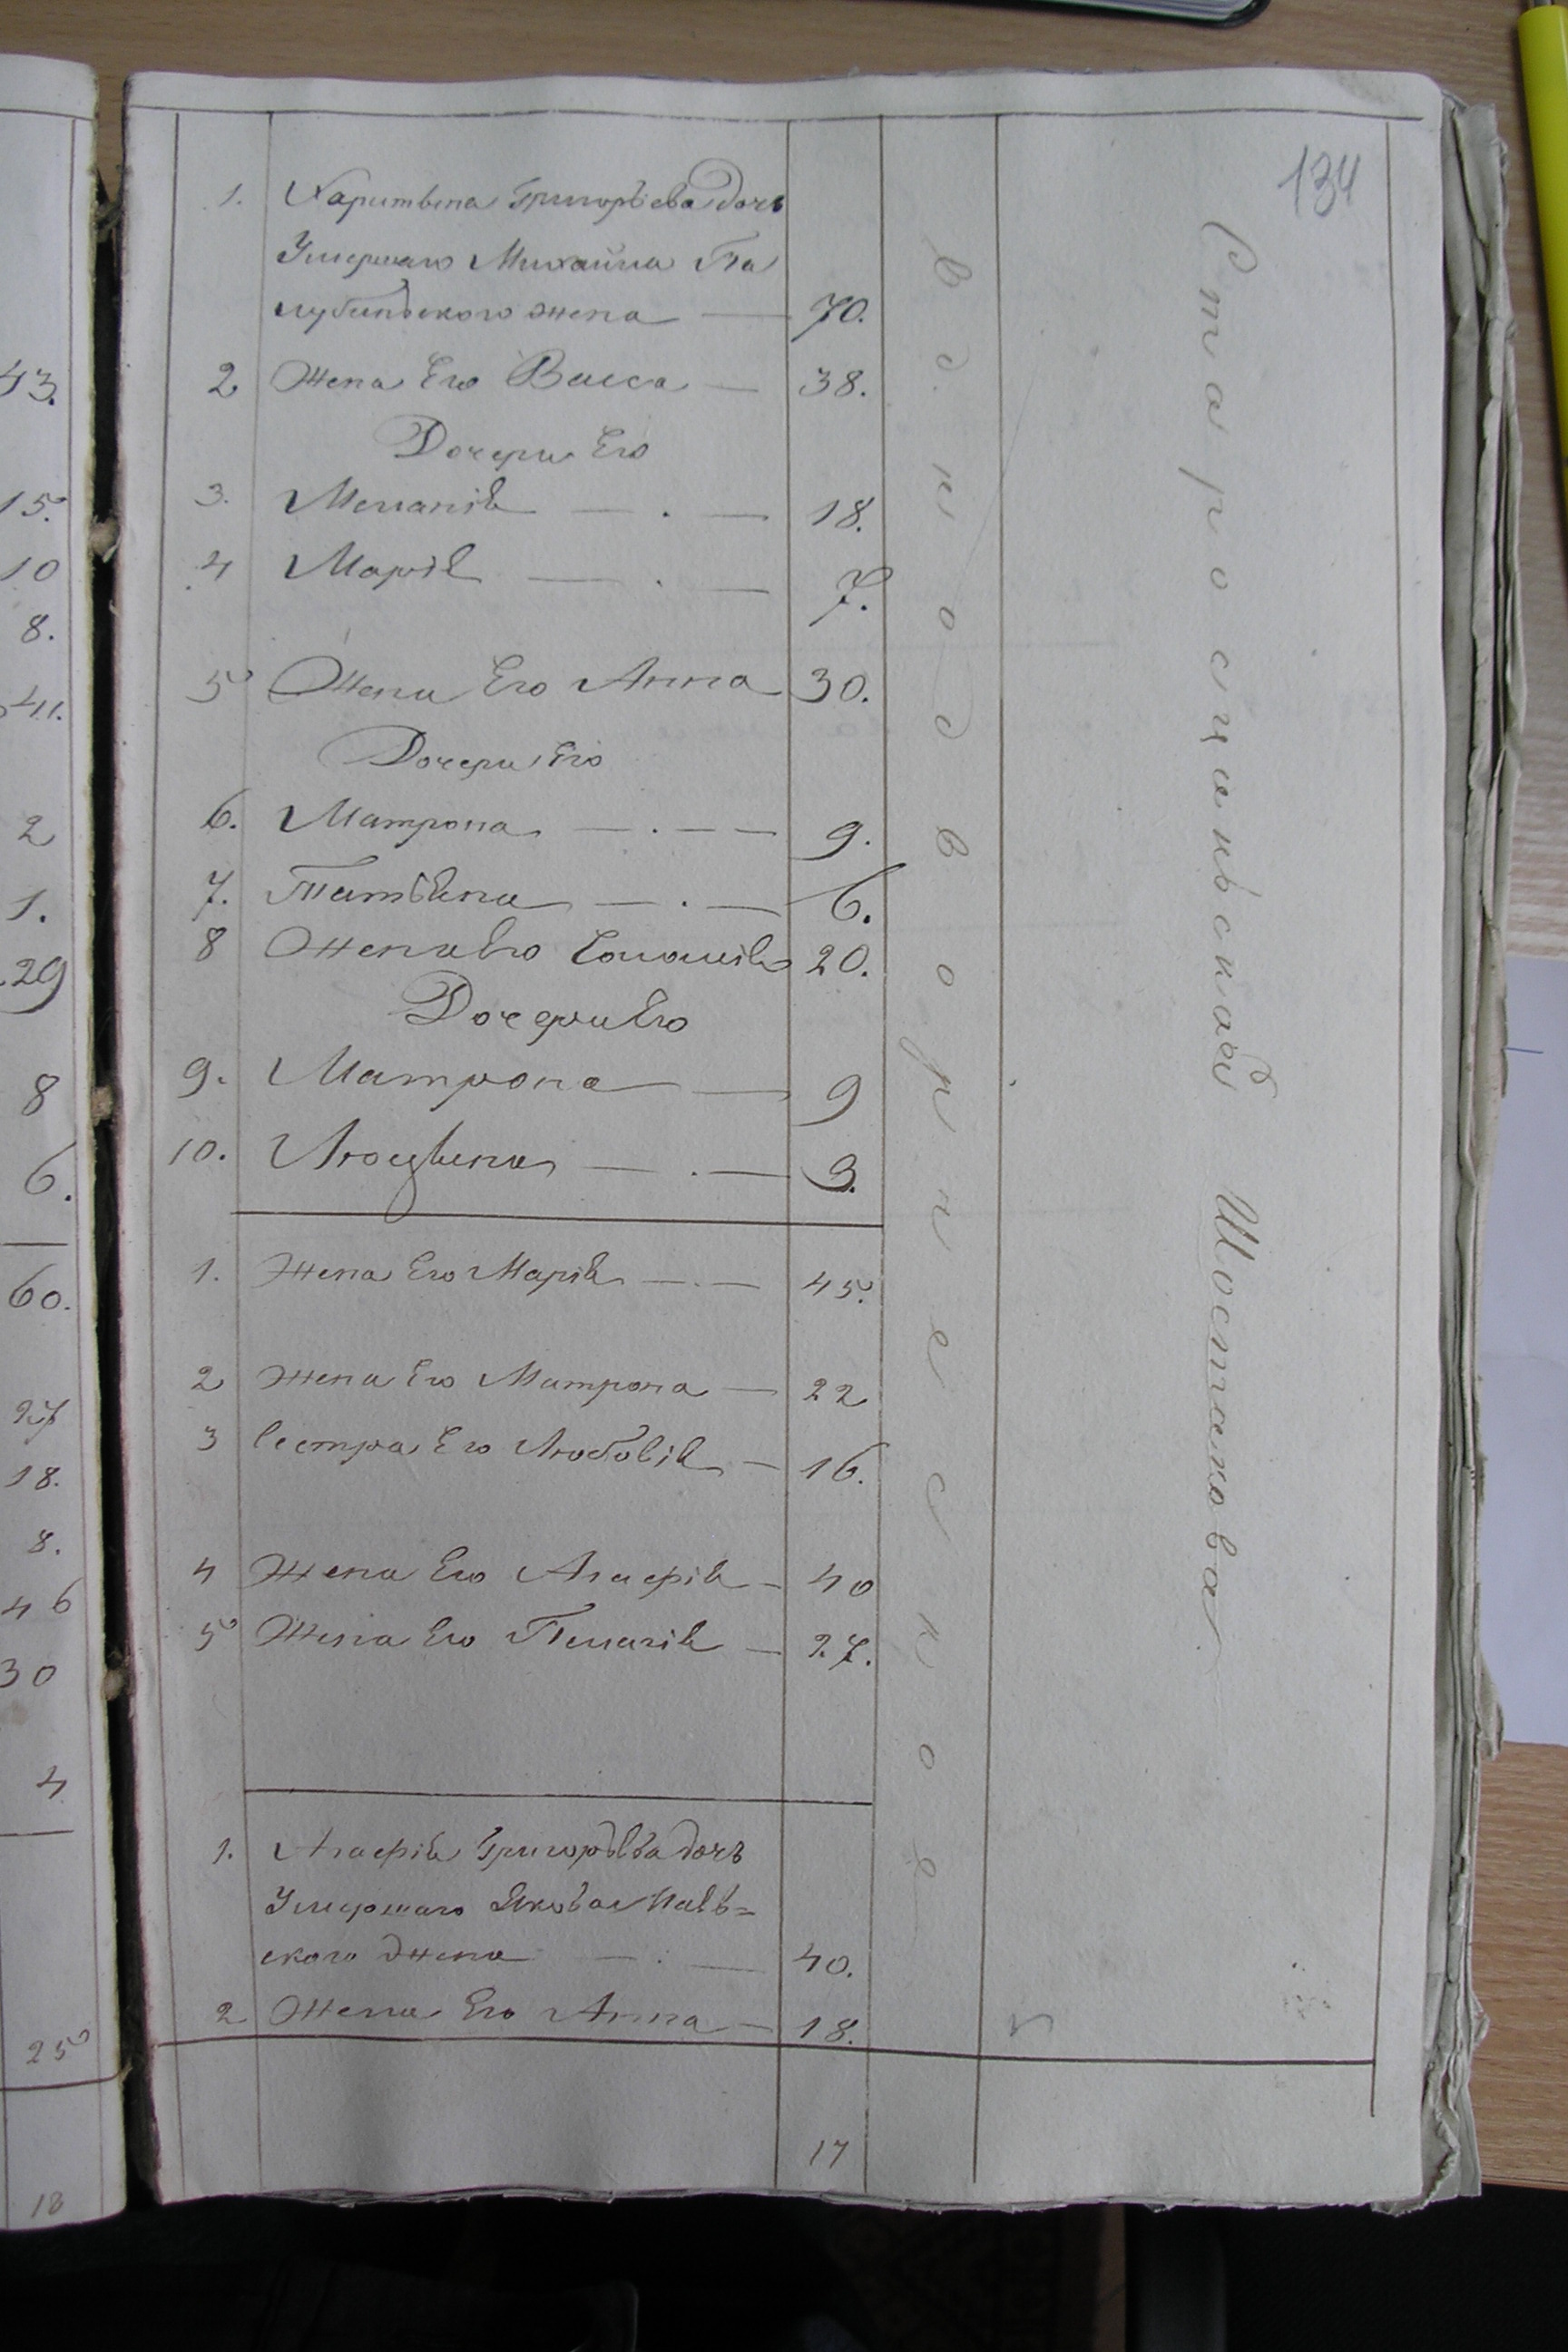 43.
15.
10
8.
41.
2
1.
29
8
6.
60.
27
18.
8.
46
30
4
25
18
134
1. Харитѣна Григорьева дочь
Умершаго Михайла Па
лубинского жена — 70.
2 Жена Его Васса — 38.
Дочери Его
3. Меланія — . — 18.
4 Марія — . — 7.
5 Жена Его Анна 30.
Дочери Его
6. Матрона — . — — 9.
7. Татіяна — . — 6.
8 Жена Его Соломія 20.
Дочери Его
9. Матрона — 9
10. — . — 3.
1. Жена Его Марія — . — 45.
2 Жена Его Матрона — 22
3 Сестра Его Любовія — 16.
4 Жена Его Агафія — 40
5 Жена Его Пелагія — 27.
1. Агафія Григорьева дочь
Умершаго Якова
ского жена — . — 40.
2 Жена Его Анна — 18.
17
В д. подворнесское
Шостакова